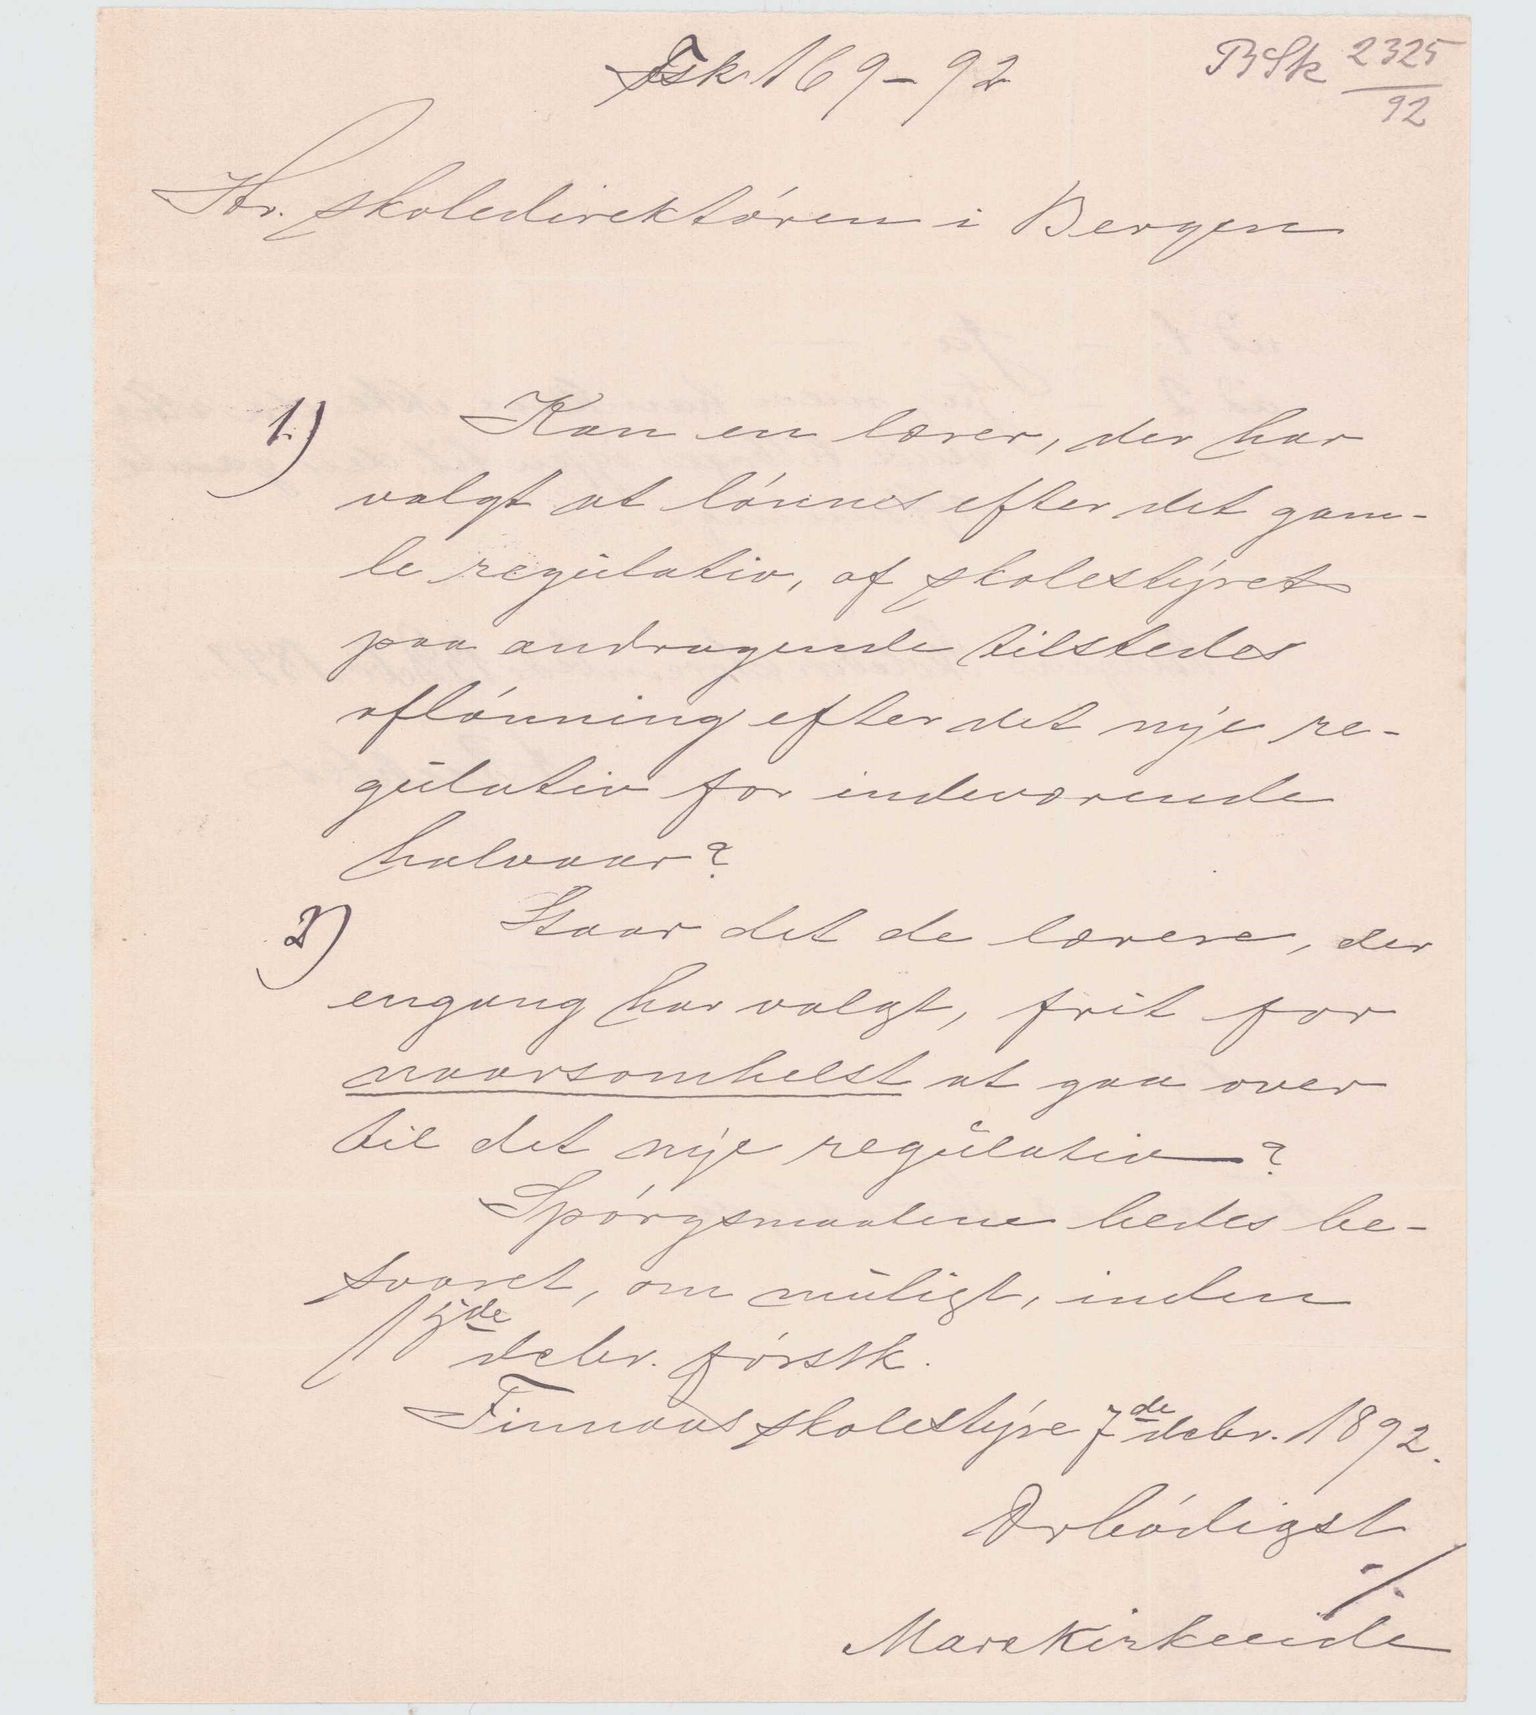 Fsk 169-92
BSk 2325/92
Hr. skoledirektøren i Bergen
1.) Kan en lærer, der har
valgt at lønnes efter det gam-
le regulativ, af skolestyret
paa andragende tilstedes
aflønning efter det nye re-
gulativ for indeværende
halvaar?
2) Staar det de lærere, der
engang har valgt, frit for
naarsomhelst at gaa over
til det nye regulativ?
Spørgsmaalene bedes be-
svaret, om muligt, inden
15de debr. førstk.
Finnaas skolestyre 7de debr. 1892.
Ærbødigst